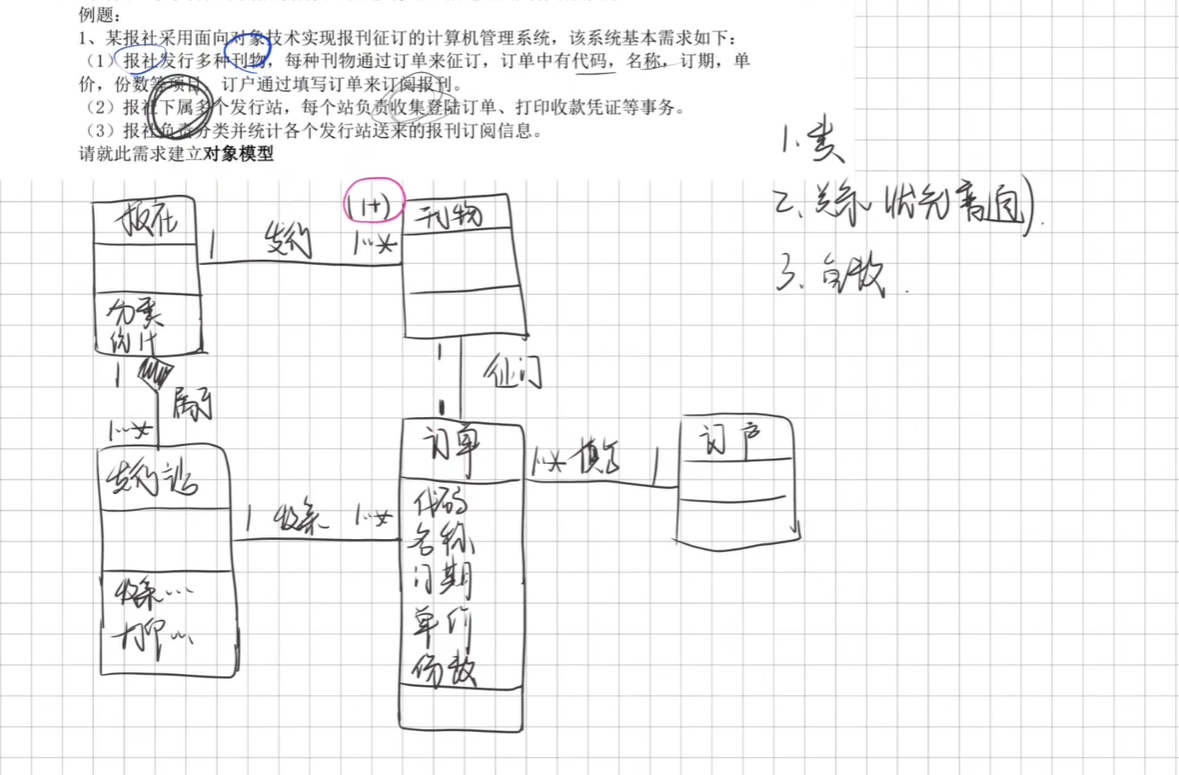 例题：
1、某报社采用面向对象技术实现报刊征订的计算机管理系统，该系统基本需求如下：
（1）报社发行多种刊物，每种刊物通过订单来征订，订单中有代码，名称，订期，单
价，份数等项目，订户通过填写订单来订阅报刊。
（2）报社下属多个发行站，每个站负责收集登陆订单、打印收款凭证等事务。
（3）报社负责分类并统计各个发行站送来的报刊订阅信息。
请就此需求建立对象模型
1.类
2、关系
3、
报社
分类
统计
1 发行 1..*
(1+)
刊物
1
属于
1..*
1
征订
1
发行站
收集...
打印...
1 收集 1..*
订单
代码
名称
订期
单价
份数
1..* 填写 1
订户